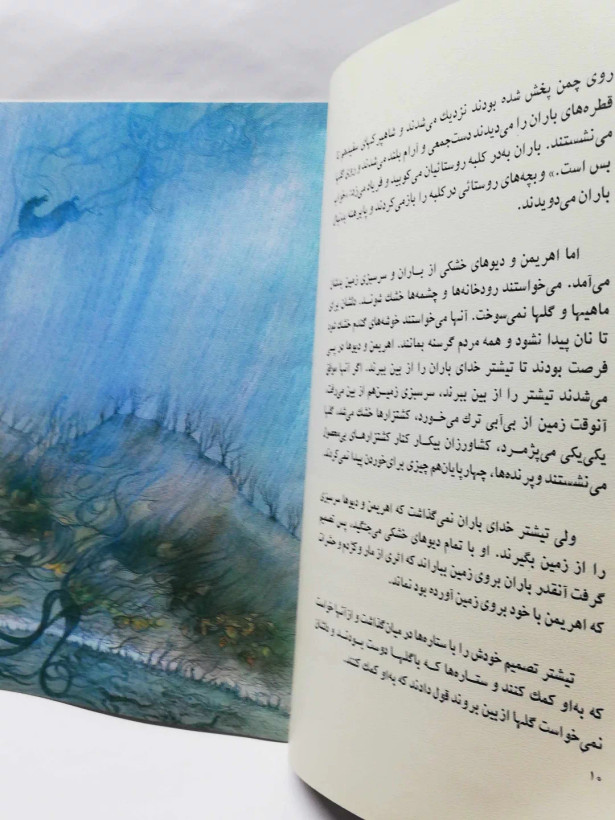 روی چمن پخش شده بودند نزدیك می‌شدند و شاهپركهای سفید هم تا
قطره‌های باران را می‌دیدند دست‌جمعی و آرام بلند می‌شدند و روی گلها
می‌نشستند. باران به‌در كلبه روستائیان می‌كوبید و فریاد می‌زد: «خواب
بس است.» و بچه‌های روستائی در كلبه را باز می‌كردند و پابرهنه بدنبال
باران می‌دویدند.
اما اهریمن و دیوهای خشكی از باران و سرسبزی زمین بدشان
می‌آمد. می‌خواستند رودخانه‌ها و چشمه‌ها خشك شوند. دلشان برای
ماهیها و گلها نمی‌سوخت. آنها می‌خواستند خوشه‌های گندم خشك شود
تا نان پیدا نشود و همه مردم گرسنه بمانند. اهریمن و دیوها در پی
فرصت بودند تا تیشتر خدای باران را از بین ببرند. اگر آنها موفق
می‌شدند تیشتر را از بین ببرند، سرسبزی زمین‌هم از بین می‌رفت
آنوقت زمین از بی‌آبی ترك می‌خورد، كشتزارها خشك می‌شد، گلها
یكی‌یكی می‌پژمرد، كشاورزان بیكار كنار كشتزارهای بی‌محصول
می‌نشستند و پرنده‌ها، چهارپایان‌هم چیزی برای‌خوردن پیدا نمی‌كردند.
ولی تیشتر خدای باران نمی‌گذاشت كه اهریمن و دیوها سرسبزی
را از زمین بگیرند. او با تمام دیوهای خشكی می‌جنگید. پس تصمیم
گرفت آنقدر باران بروی زمین بباراند كه اثری از مار و كژدم و حشرات
كه اهریمن با خود بروی زمین آورده بود نماند.
تیشتر تصمیم خودش را با ستاره‌ها در میان گذاشت و از آنها خواست
كه به‌او كمك كنند و ستاره‌ها كه باگلها دوست بودند و دلشان
نمی‌خواست گلها ازبین بروند قول دادند كه به‌او كمك كنند.
۱۰